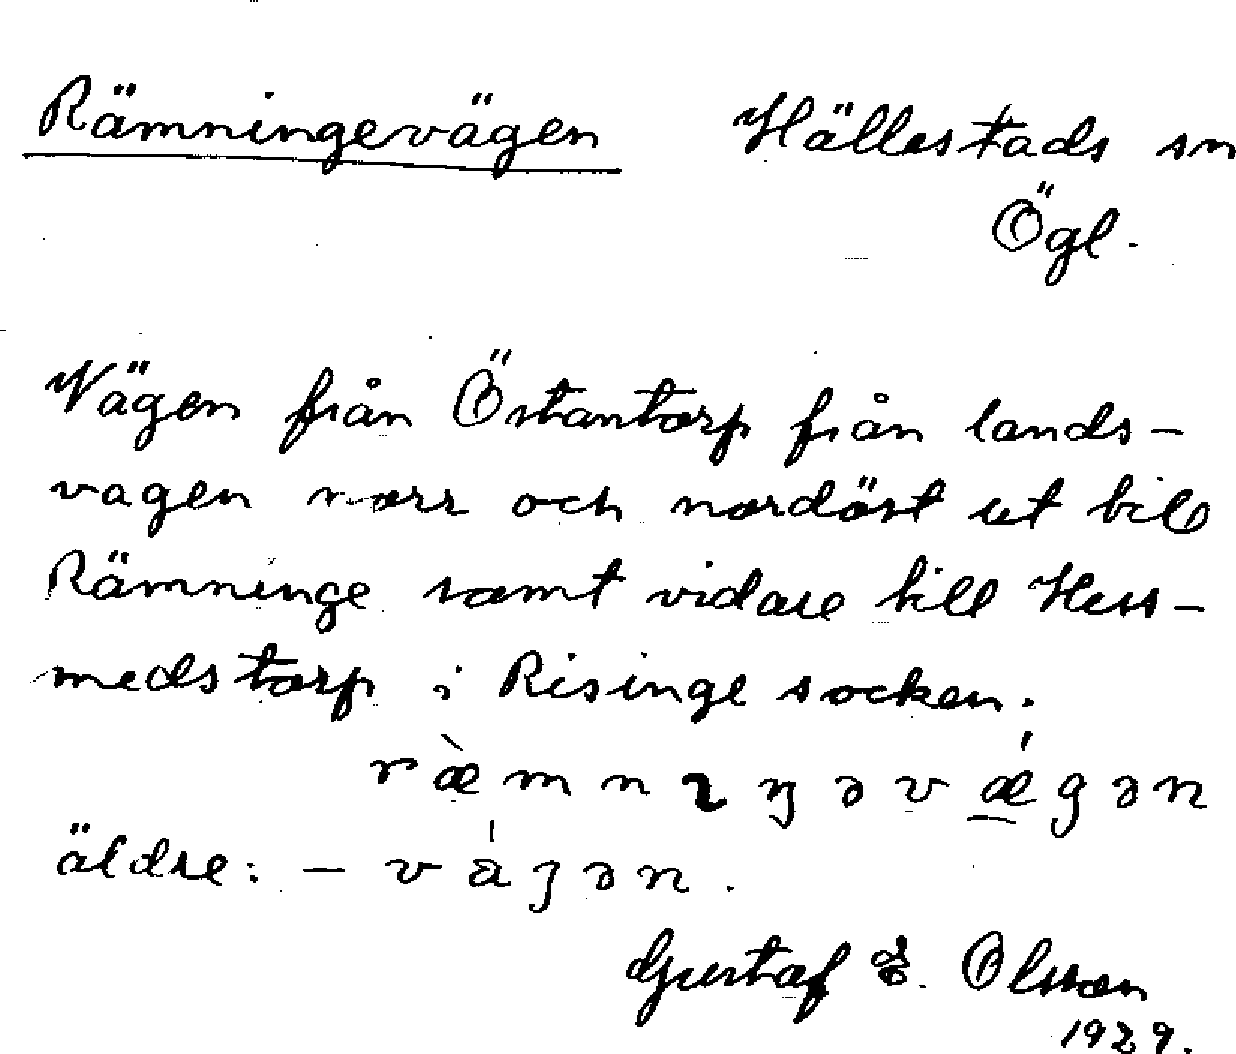 Rämningevägen Hällestads sn
Ögl.
Vägen från Östantorp från lands-
vagen norr och nordöst ut till
Rämninge samt vidare till Hess-
medstorp i Risinge socken.
ræ̀mnɪŋəvǽgən
äldre: – váʒən.
Gustaf E. Olsson
1929.